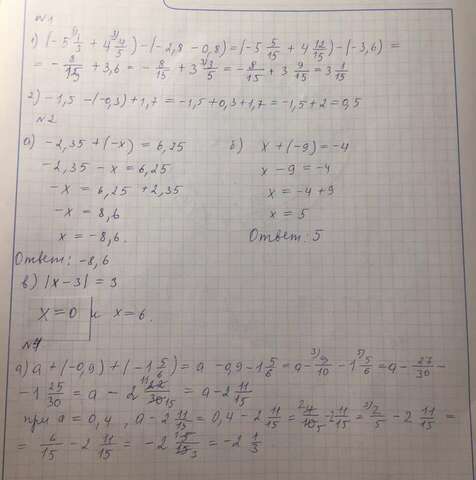 №1
1) (-5 5)1/3 + 4 3)4/5) - (-2,8 - 0,8) = (-5 5/15 + 4 12/15) - (-3,6) =
= - 8/15 + 3,6 = - 8/15 + 3 3)3/5 = - 8/15 + 3 9/15 = 3 1/15
2) -1,5 - (-0,3) + 1,7 = -1,5 + 0,3 + 1,7 = -1,5 + 2 = 0,5
№2
а) -2,35 + (-x) = 6,25
-2,35 - x = 6,25
-x = 6,25 + 2,35
-x = 8,6
x = -8,6.
Ответ: -8,6
б) x + (-9) = -4
x - 9 = -4
x = -4 + 9
x = 5
Ответ: 5
в) |x-3| = 3
x=0 и x=6.
а) a + (-0,9) + (-1 5/6) = a - 0,9 - 1 5/6 = a - 3)9/10 - 1 5)5/6 = a - 27/30 -
- 1 25/30 = a - 2 11)22/30 15 = a - 2 11/15
при a = 0,4, a - 2 11/15 = 0,4 - 2 11/15 = 2)4/10 5 - 2 11/15 = 3)2/5 - 2 11/15 =
= 6/15 - 2 11/15 = -2 5/15 3 = -2 1/3